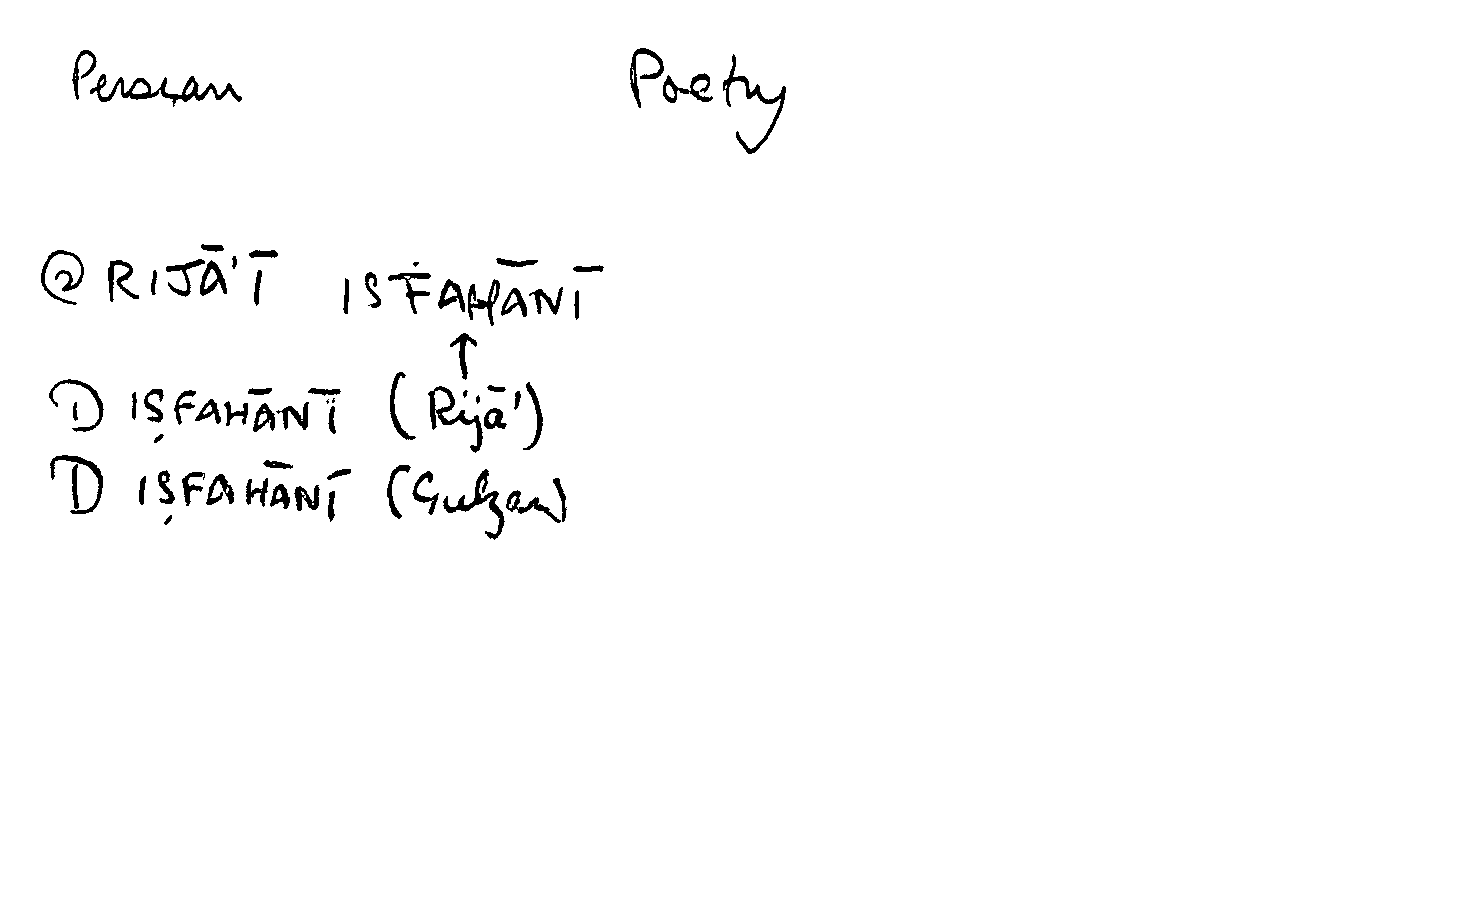 Persian Poetry
② RIJĀ'Ī ISFAHĀNĪ
↑
① IṢFAHĀNĪ (Rijā')
① IṢFAHĀNĪ (Gulzar)